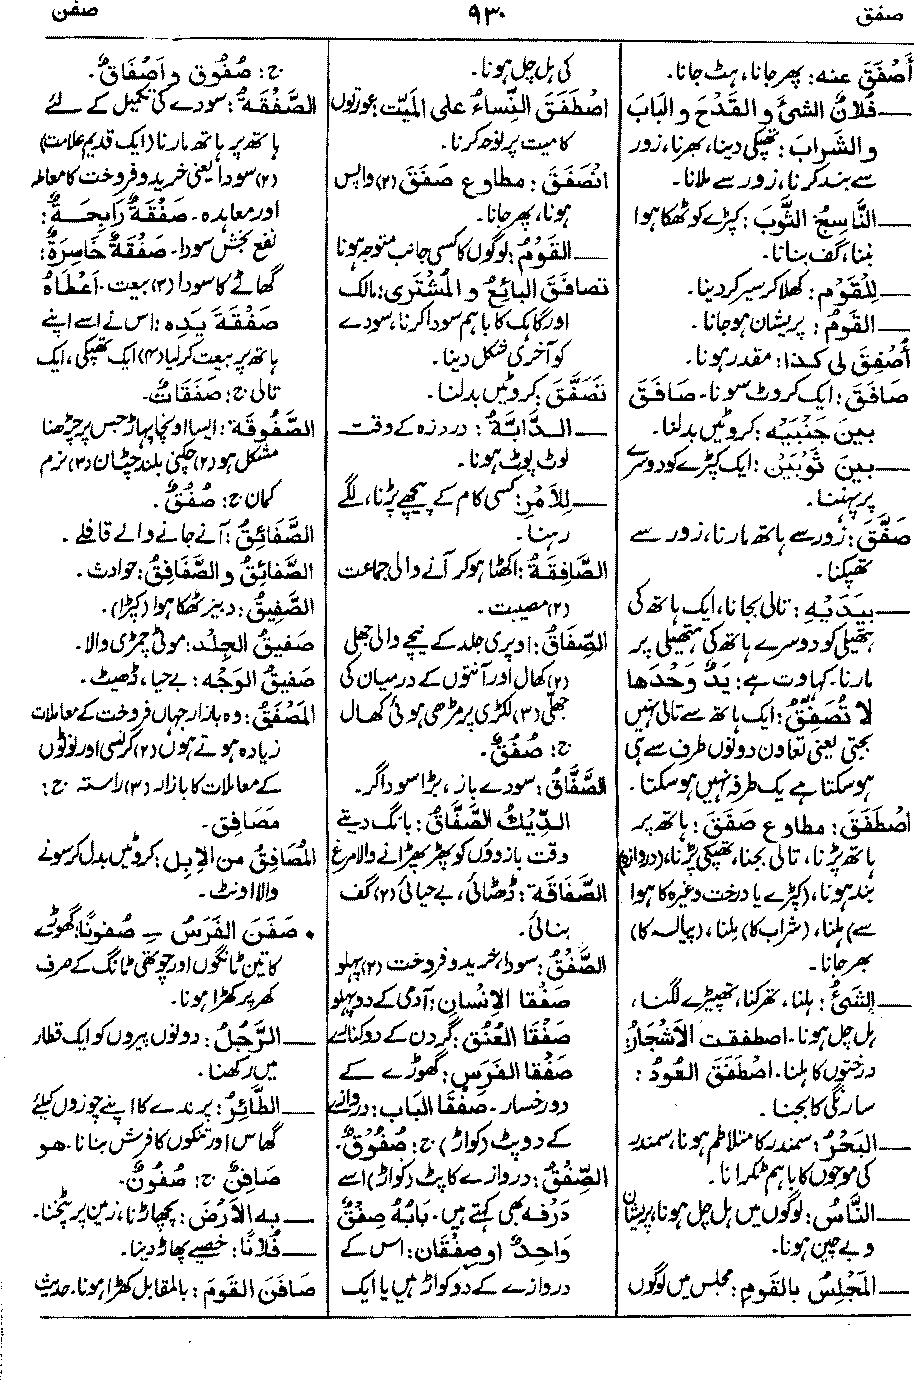 صفق
۹۳۰
صفن
أَصْفَقَ عنه: پھر جانا، ہٹ جانا۔
— فُلانٌ الشیَٔ و القَدَحَ و البَابَ
و الشَّرابَ: تھپکی دینا، بھرنا، زور
سے بند کرنا، زور سے ملانا۔
— النَّاسِجُ الثَّوبَ: کپڑے کو ٹھکا ہوا
بننا، گف بنانا۔
— لِلْقَوْمِ: کھلا کر سیر کر دینا۔
— القَومُ: پریشان ہو جانا۔
أُصْفِقَ لی کَذا: مقدر ہونا۔
صَافَقَ: ایک کروٹ سونا۔ صَافَقَ
بینَ جَنْبَیْهِ: کروٹیں بدلنا۔
— بینَ ثَوْبَیْن: ایک کپڑے کو دوسرے
پر پہننا۔
صَفَّقَ: زور سے ہاتھ مارنا، زور سے
تھپکنا۔
— بِیَدَیْهِ: تالی بجانا، ایک ہاتھ کی
ہتھیلی کو دوسرے ہاتھ کی ہتھیلی پر
مارنا۔ کہاوت ہے: یَدٌ وَحْدَها
لا تُصَفِّقُ: ایک ہاتھ سے تالی نہیں
بجتی یعنی تعاون دونوں طرف سے ہی
ہو سکتا ہے یک طرفہ نہیں ہو سکتا۔
اصْطَفَقَ: مطاوع صَفَقَ: ہاتھ پر
ہاتھ پڑنا، تالی بجنا، تھپکی پڑنا، (دروازہ)
بند ہونا، (کپڑے یا درخت وغیرہ کا ہوا
سے) ہلنا، (شراب کا) ہلنا، (پیالہ کا)
بھر جانا۔
— الشَیُٔ: ہلنا، تھرکنا، تھپیڑے لگنا،
ہل چل ہونا۔ اصطفقت الأشْجَارُ:
درختوں کا ہلنا۔ اصْطَفَقَ العُودُ:
سارنگی کا بجنا۔
— البَحْرُ: سمندر کا متلاطم ہونا، سمندر
کی موجوں کا باہم ٹکرانا۔
— النَّاسُ: لوگوں میں ہل چل ہونا، پریشان
و بے چین ہونا۔
— المَجْلِسُ بالقَومِ: مجلس میں لوگوں
کی ہل چل ہونا۔
اصْطَفَقَ النِّساءُ علی المَیّت: عورتوں
کا میت پر نوحہ کرنا۔
انْصَفَقَ: مطاوع صَفَقَ (۲) واپس
ہونا، پھر جانا۔
— القَوْمُ: لوگوں کا کسی جانب متوجہ ہونا
تصَافَقَ البَائِعُ و المُشْتَری: مالک
اور گاہک کا باہم سودا کرنا، سودے
کو آخری شکل دینا۔
تَصَفَّقَ: کروٹیں بدلنا۔
— الدَّابَّةُ: دردزہ کے وقت
لوٹ پوٹ ہونا۔
— لِلأمْرِ: کسی کام کے پیچھے پڑنا، لگے
رہنا۔
الصَّافِقَةُ: اکٹھا ہو کر آنے والی جماعت
(۲) مصیبت۔
الصِّفَاقُ: اوپری جلد کے نیچے والی جھلی
(۲) کھال اور آنتوں کے درمیان کی
جھلی (۳) لکڑی پر مڑھی ہوئی کھال
ج: صُفُقٌ۔
الصَّفَّاقُ: سودے باز، بڑا سوداگر۔
الدِّیْكُ الصَّفَّاقُ: بانگ دیتے
وقت بازوؤں کو پھڑپھڑانے والا مرغ
الصَّفَاقَة: ڈھٹائی، بے حیائی (۲) گف
بنائی۔
الصَّفْقُ: سودا، خرید و فروخت (۲) پہلو
صَفْقَا الإنْسانِ: آدمی کے دو پہلو
صَفْقَا العُنُقِ: گردن کے دو کنارے
صَفْقَا الفَرَسِ: گھوڑے کے
دو رخسار۔ صَفْقَا البَاب: دروازے
کے دو پٹ (کواڑ) ج: صُفُوْقٌ۔
الصِّفْقُ: دروازے کا پٹ (کواڑ) اسے
دَرْفَہ بھی کہتے ہیں۔ بَابُهُ صِفْقٌ
وَاحِدٌ او صِفْقَان: اس کے
دروازے کے دو کواڑ ہیں یا ایک
ج: صُفُوق و أصْفَاقٌ۔
الصَّفْقَةُ: سودے کی تکمیل کے لئے
ہاتھ پر ہاتھ مارنا (ایک قدیم علامت)
(۲) سودا یعنی خرید و فروخت کا معاملہ
اور معاہدہ۔ صَفْقَةٌ رَابِحَةٌ:
نفع بخش سودا۔ صَفْقَةٌ خَاسِرَةٌ:
گھاٹے کا سودا (۳) بیعت۔ أعْطَاهُ
صَفْقَةَ یَدِه: اس نے اسے اپنے
ہاتھ پر بیعت کر لیا (۴) ایک تھپکی، ایک
تالی ج: صَفَقَاتٌ۔
الصَّفُوقَة: ایسا اونچا پہاڑ جس پر چڑھنا
مشکل ہو (۲) چکنی بلند چٹان (۳) نرم
کمان ج: صُفُقٌ۔
الصَّفَائِقُ: آنے جانے والے قافلے۔
الصَّفَائِقُ و الصَّفَافِقُ: حوادث۔
الصَّفِیقُ: دبیز ٹھکا ہوا (کپڑا)۔
صَفِیقُ الجِلْد: موٹی چمڑی والا۔
صَفِیقُ الوَجْه: بے حیا، ڈھیٹ۔
المَصْفَقُ: وہ بازار جہاں فروخت کے معاملات
زیادہ ہوتے ہوں (۲) کرنسی اور نوٹوں
کے معاملات کا بازار (۳) راستہ ج:
مَصَافِق۔
المُصَافِقُ من الإبِل: کروٹیں بدل کر سونے
والا اونٹ۔
• صَفَنَ الفَرَسُ — صُفونًا: گھوڑے
کا تین ٹانگوں اور چوتھی ٹانگ کے صرف
کھر پر کھڑا ہونا۔
— الرَّجُلُ: دونوں پیروں کو ایک قطار
میں رکھنا۔
— الطَّائِرُ: پرندے کا اپنے چوزوں کیلئے
گھاس اور تنکوں کا فرش بنانا۔ هو
صَافِنٌ ج: صُفُونٌ۔
— بِه الأرْضَ: پچھاڑنا، زمین پر پٹخنا۔
— فُلانًا: خصیے پھاڑ دینا۔
صَافَنَ القَومَ: بالمقابل کھڑا ہونا۔ حدیث